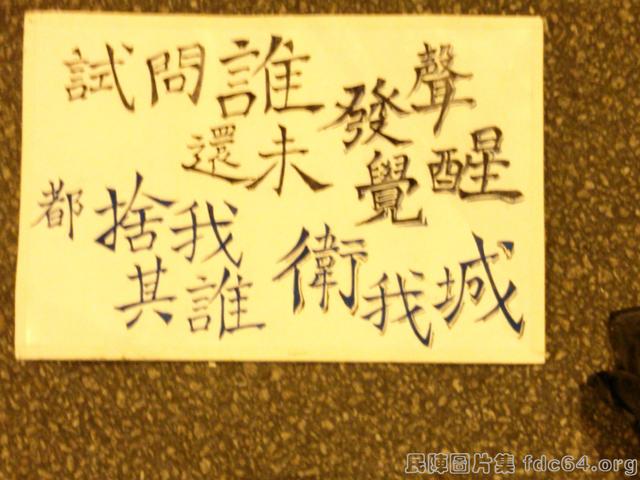 試問誰
還未
發聲
覺醒
都捨我
其誰
衛我城
民陣圖片集 fdc64.org